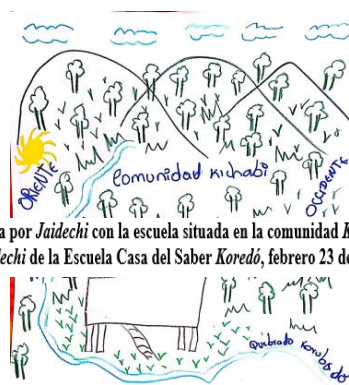 ORIENTE
Comunidad
OCCIDENTE
a por Jaidechi con la escuela situada en la comunidad K
echi de la Escuela Casa del Saber Koredó, febrero 23 de